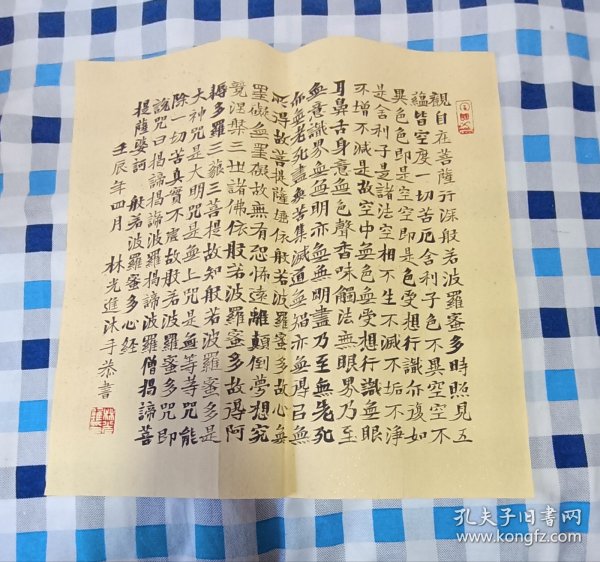 觀自在菩薩行深般若波羅蜜多時照見五
蘊皆空度一切苦厄舍利子色不異空空不
異色色即是空空即是色受想行識亦復如
是舍利子是諸法空相不生不滅不垢不淨
不增不減是故空中無色無受想行識無眼
耳鼻舌身意無色聲香味觸法無眼界乃至
無意識界無無明亦無無明盡乃至無老死
亦無老死盡無苦集滅道無智亦無得以無
所得故菩提薩埵依般若波羅蜜多故心無
罣礙無罣礙故無有恐怖遠離顛倒夢想究
竟涅槃三世諸佛依般若波羅蜜多故得阿
耨多羅三藐三菩提故知般若波羅蜜多是
大神咒是大明咒是無上咒是無等等咒能
除一切苦真實不虛故般若波羅蜜多咒即
說咒曰揭諦揭諦波羅揭諦波羅僧揭諦菩
提薩婆訶 般若波羅蜜多心經
壬辰年四月 林光進沐手恭書
孔夫子旧书网
www.kongfz.com